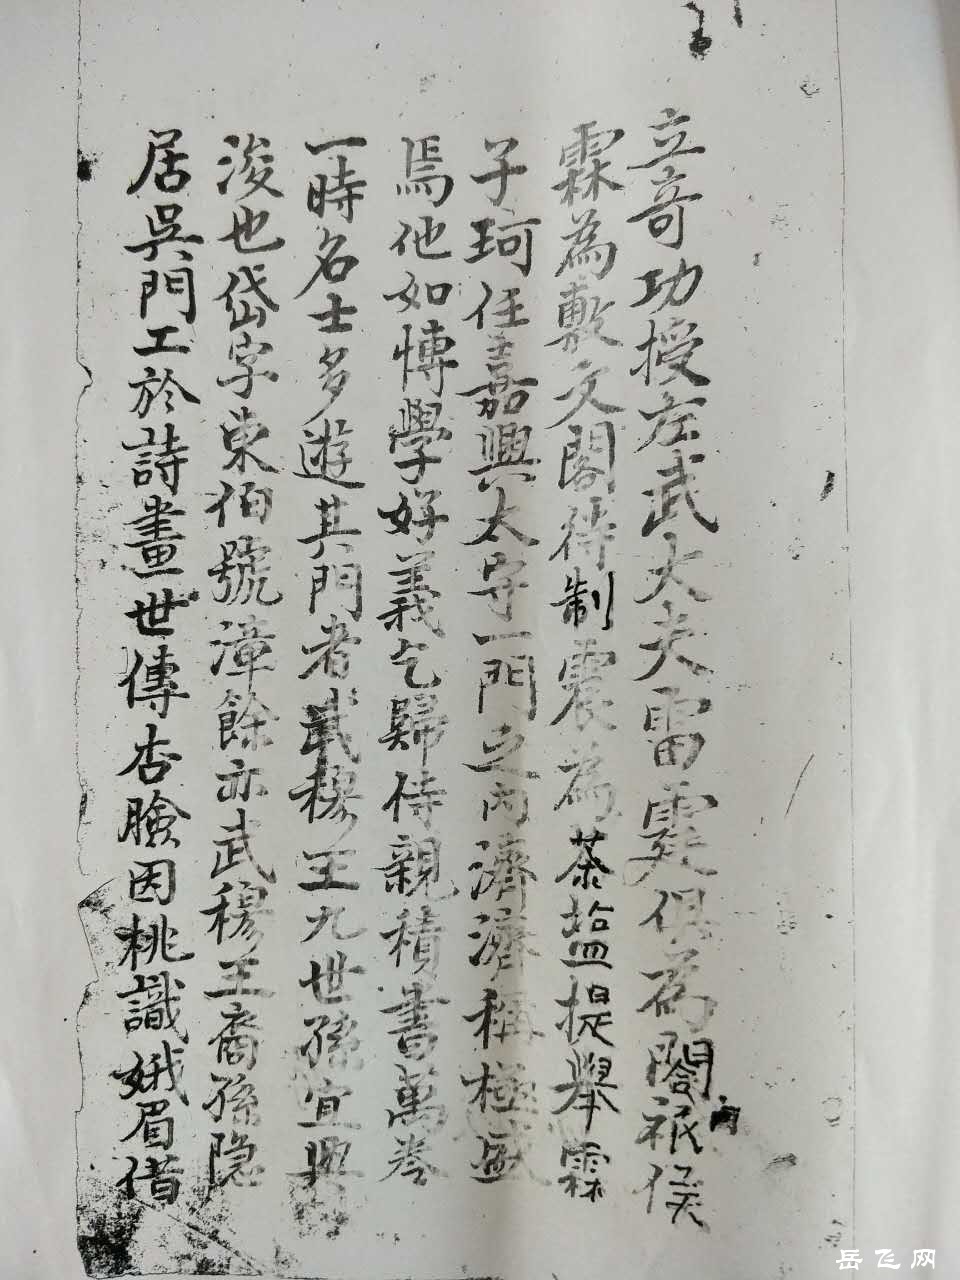 立奇功授左武大夫雷霆俱為閤祇侯
內
霖為敷文閣待制震為茶鹽提舉霖
子珂任嘉興太守一門之內濟濟稱極盛
焉他如博學好義乞歸侍親積書萬卷
一時名士多遊其門者武穆王九世孫宜興
浚也岱字東伯號漳餘亦武穆王裔孫隐
居吳門工於詩畫世傳杏臉因桃識娥眉借
岳飞网